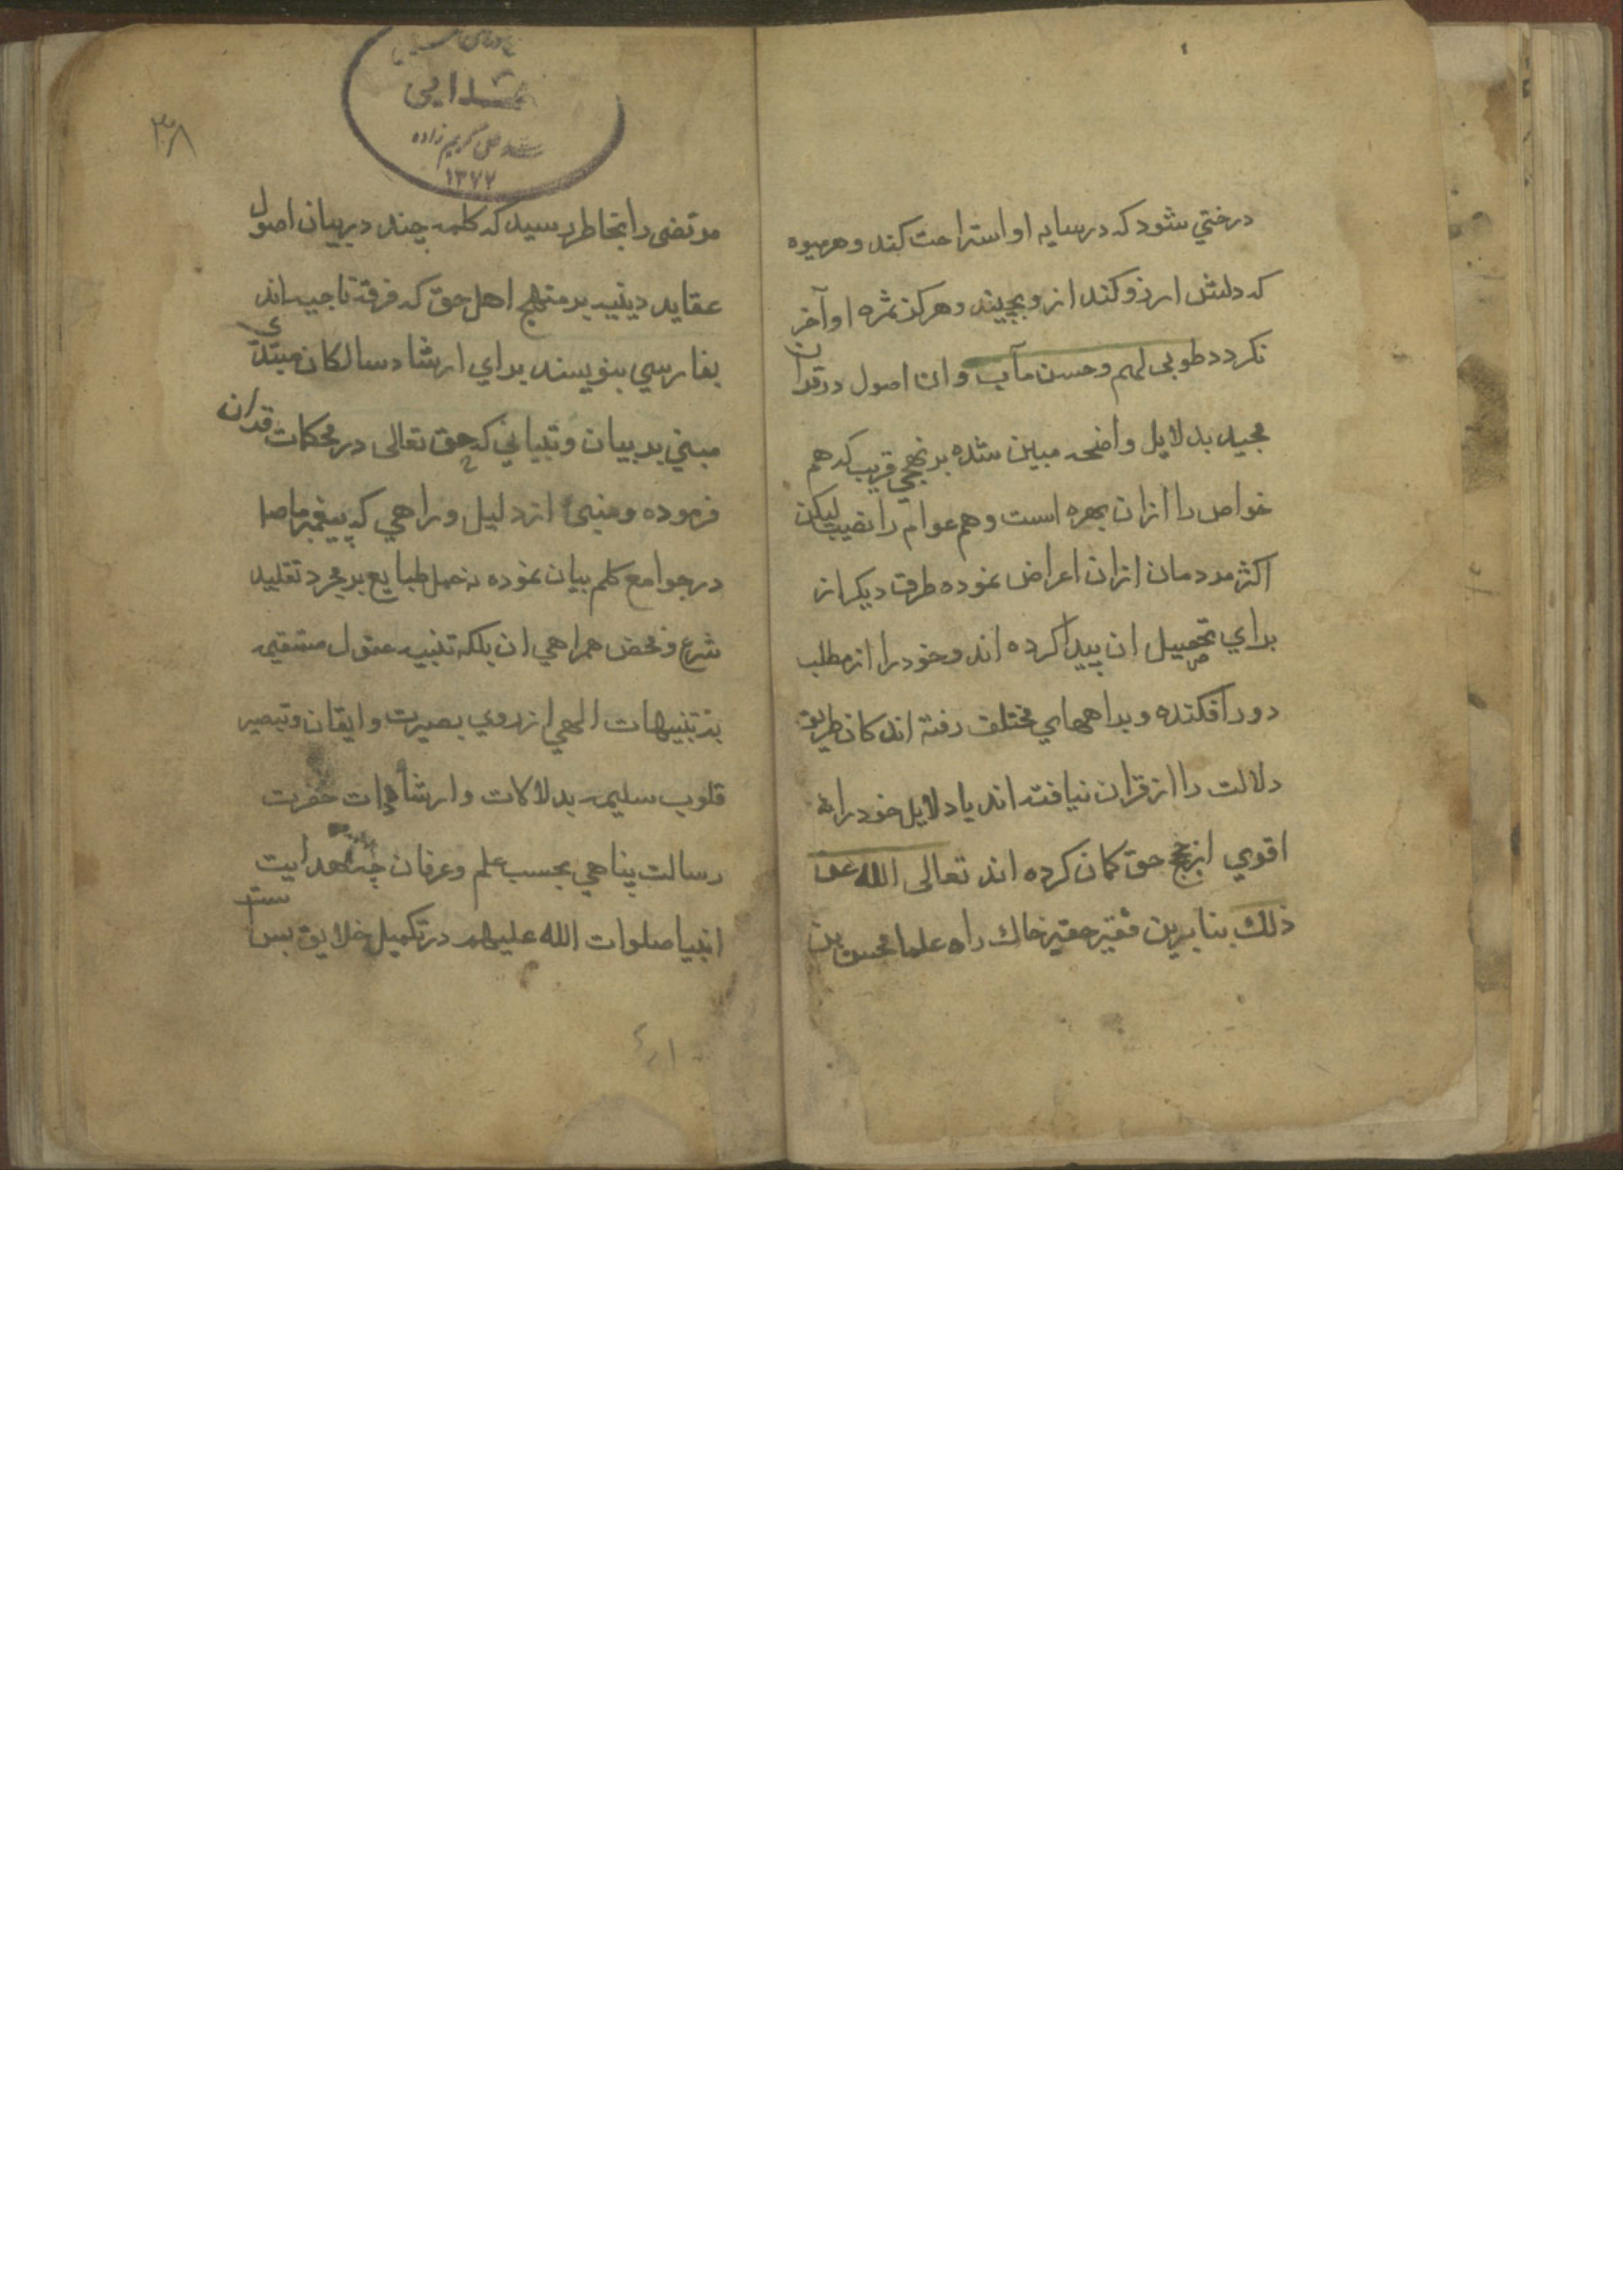 درختي شود که درسایه او استراحت کند و هر میوه
که دلش ارزو کند ازو بچیند و هرکز ثمره او آخر
نکردد طوبی لهم وحسن مآب و ان اصول در قران
مجید بدلایل واضحه مبین شده بر نهجي قریب که هم
خواص را ازان بهره است و هم عوام را نصیب لیکن
اکثر مردمان ازان اعراض نموده طرق دیکر از
براي تحصیل ان پیدا کرده اند و خود را از مطلب
دور افکنده و براههاي مختلف رفته اند کان طریق
دلالت را از قران نیافته اند یا دلایل خود را
اقوي از نهج حق کمان کرده اند تعالی الله عن
ذلك بنابرین فقیر حقیر خاك راه علما محسن بن
مرتضی را بخاطر رسید که کلمه چند در بیان اصول
عقاید دینیه بر منهج اهل حق که فرقه ناجیه اند
بفارسي بنویسد براي ارشاد سالکان مبتدي
مبني بر بیان و تبیاني که حق تعالی در محکمات قران
فرموده و منبئ از دلیل و راهي که پیغمبر ما صلا
در جوامع کلم بیان نموده نه حمل طبایع بر مجرد تقلید
شرع و محض همراهي ان بلکه تنبیه عقول مستقیمه
بر تنبیهات الهي از روي بصیرت و ایقان و تبصیر
قلوب سلیمه بدلالات و ارشادات حضرت
رسالت پناهي بحسب علم و عرفان چه هدایت
انبیا صلوات الله علیهم در تکمیل خلایق بس است
۳۸
سید علی کریم زاده
۱۳۷۲